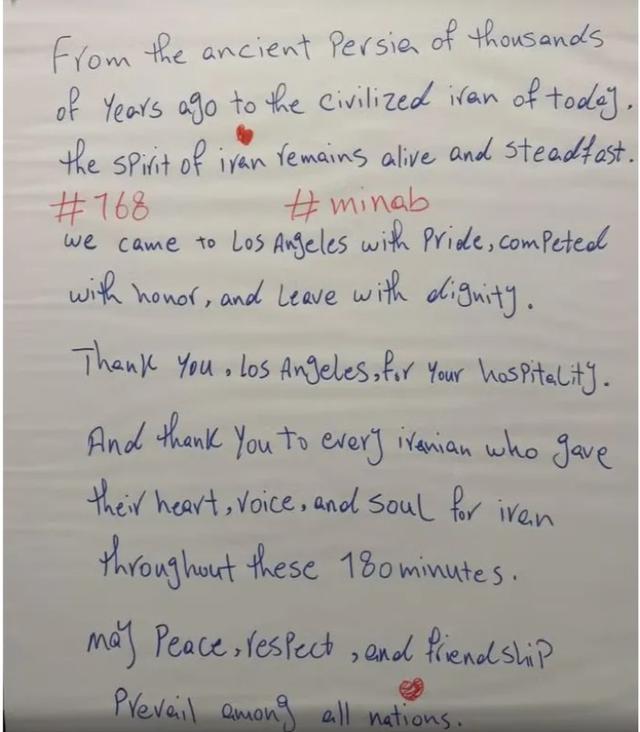 From the ancient Persia of thousands
of Years ago to the civilized iran of today.
the spirit of iran remains alive and steadfast.
#168 #minab
we came to Los Angeles with Pride, competed
with honor, and Leave with dignity.
Thank you, Los Angeles, for your hospitality.
And thank you to every iranian who gave
their heart, voice, and soul for iran
throughout these 180 minutes.
may Peace, respect, and friendship
Prevail among all nations.